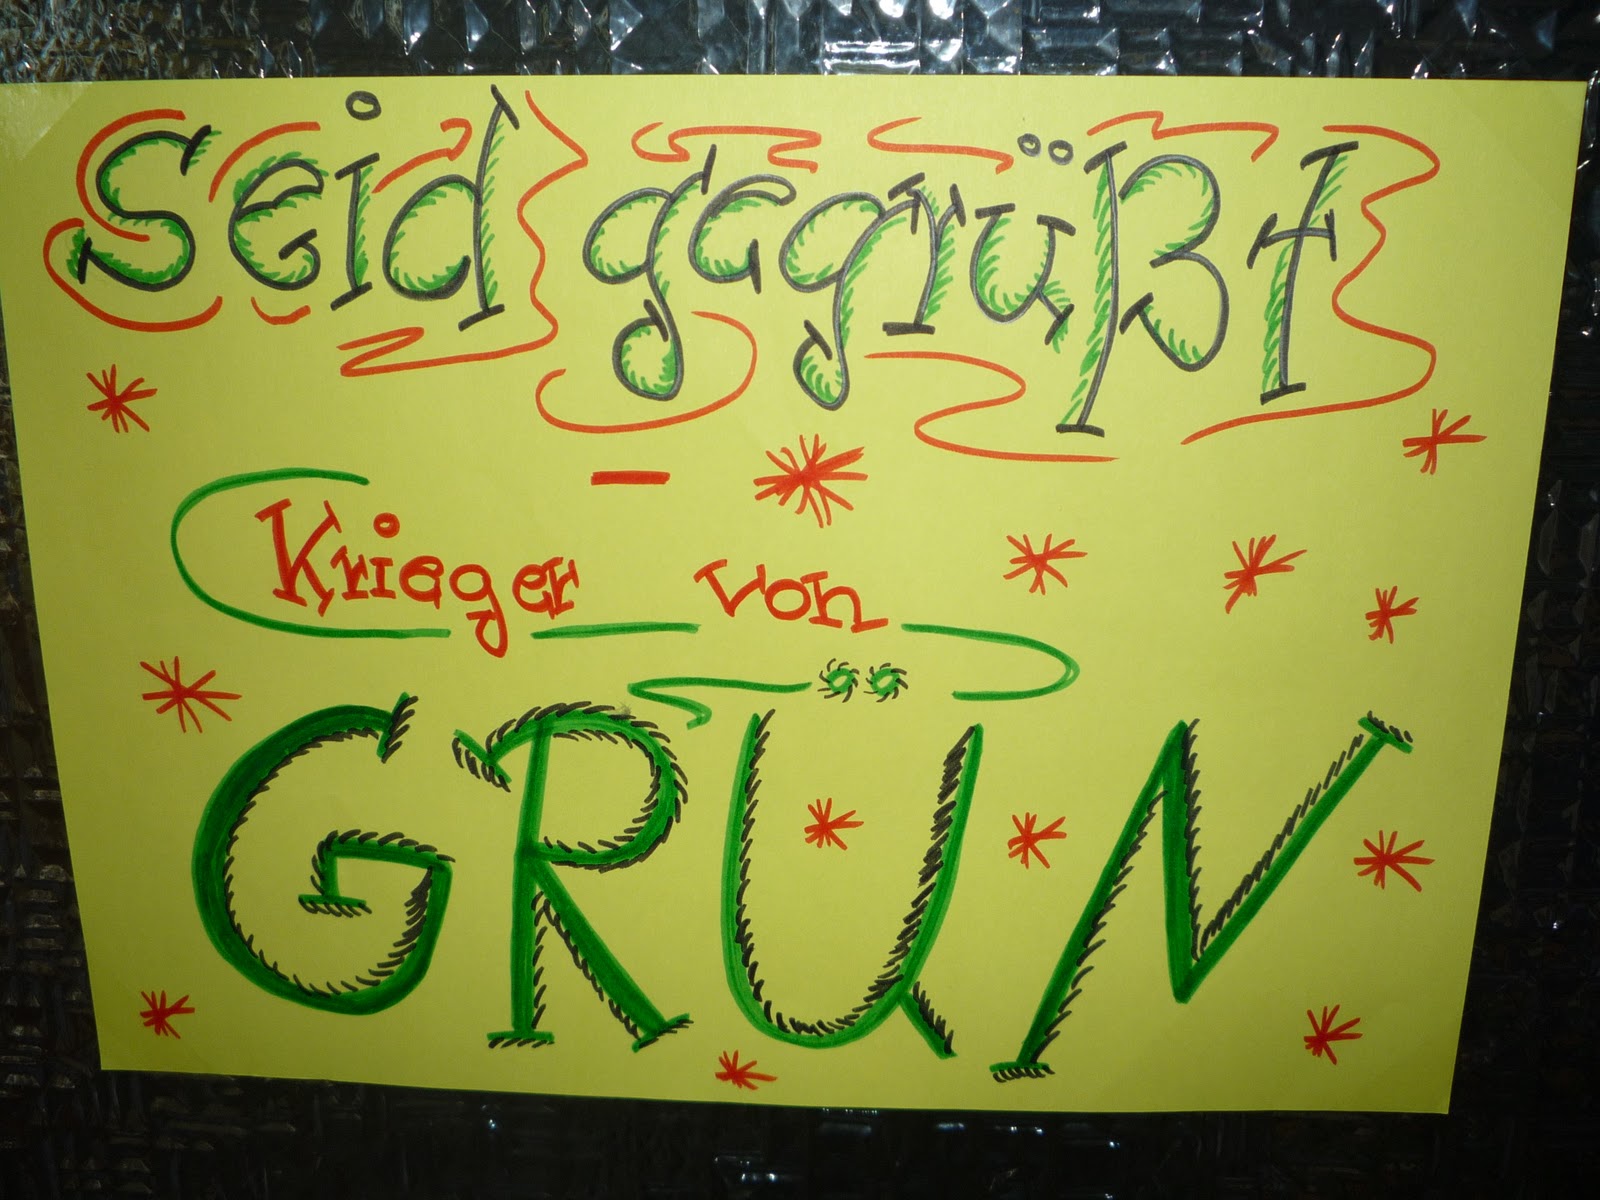 Seid gegrüßt
-
Krieger von
GRÜN